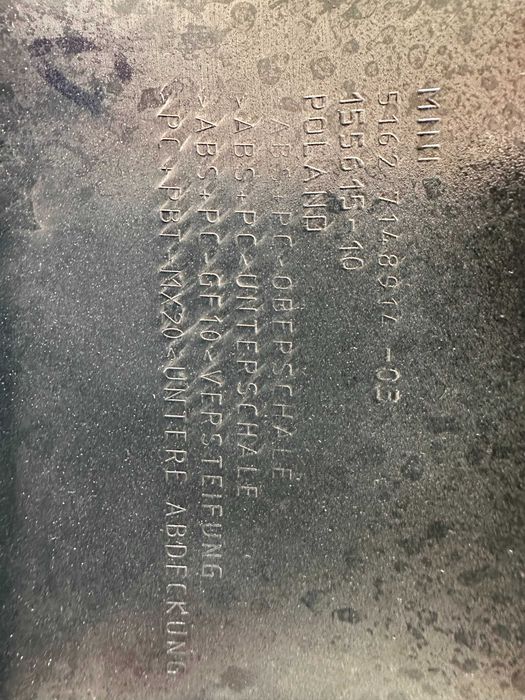 MINI
5162 7148914 -03
155615-10
POLAND
>ABS+PC<OBERSCHALE
>ABS+PC<UNTERSCHALE
>ABS+PC-GF10<VERSTEIFUNG
>PC+PBT-MX20<UNTERE ABDECKUNG